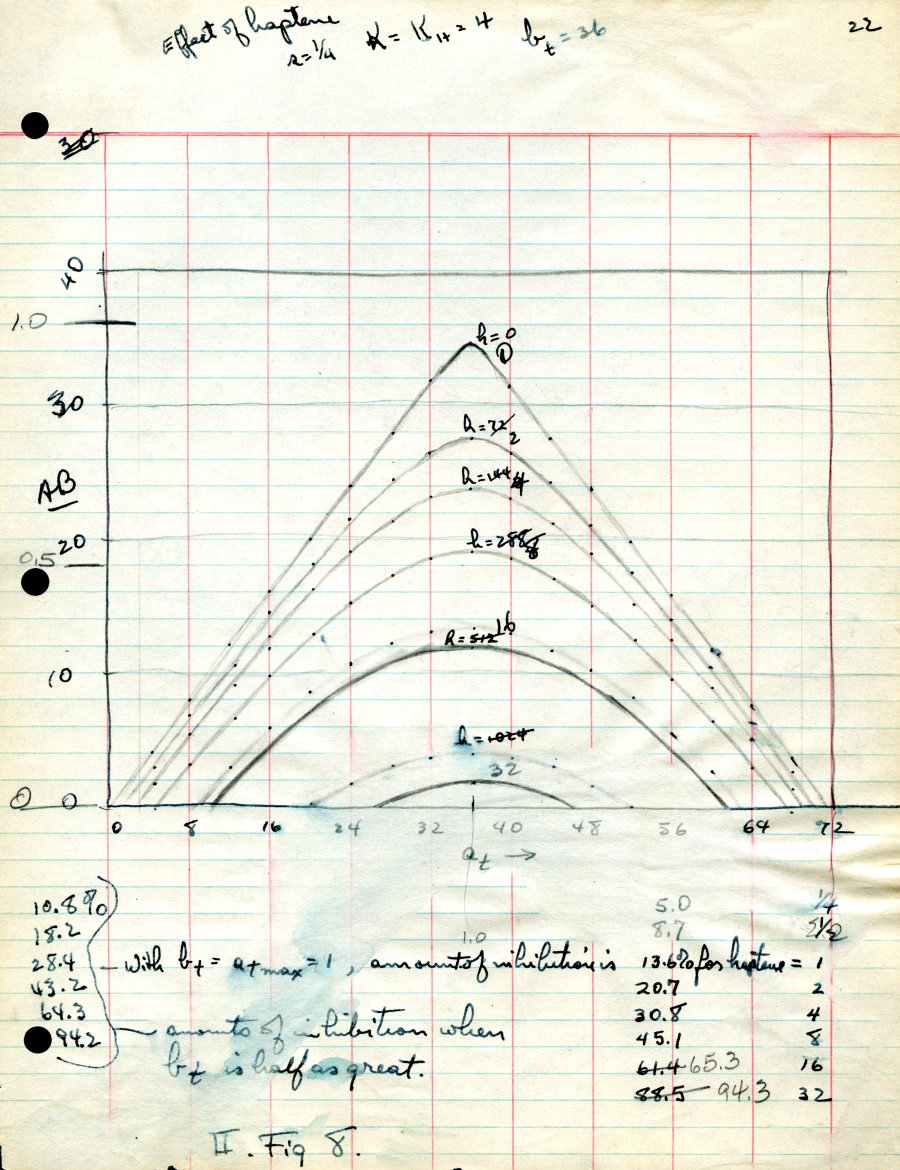 Effect of haptene K = K1+ = 4 bt = 36 22
r=1/4
30
40
1.0
h=0
①
30
h=72 2
h=144 4
AB
20
h=288 8
0.5
h=512 16
10
h=1024
32
0 0
0 8 16 24 32 40 48 56 64 72
at →
1.0
10.8% 5.0 1/4
18.2 8.7 1/2
28.4 with bt = at max = 1, amount of inhibition is 13.6% for haptene = 1
43.2 20.7 2
64.3 30.8 4
94.2 amounts of inhibition when 45.1 8
bt is half as great. 61.4 65.3 16
88.5 94.3 32
II. Fig 8.